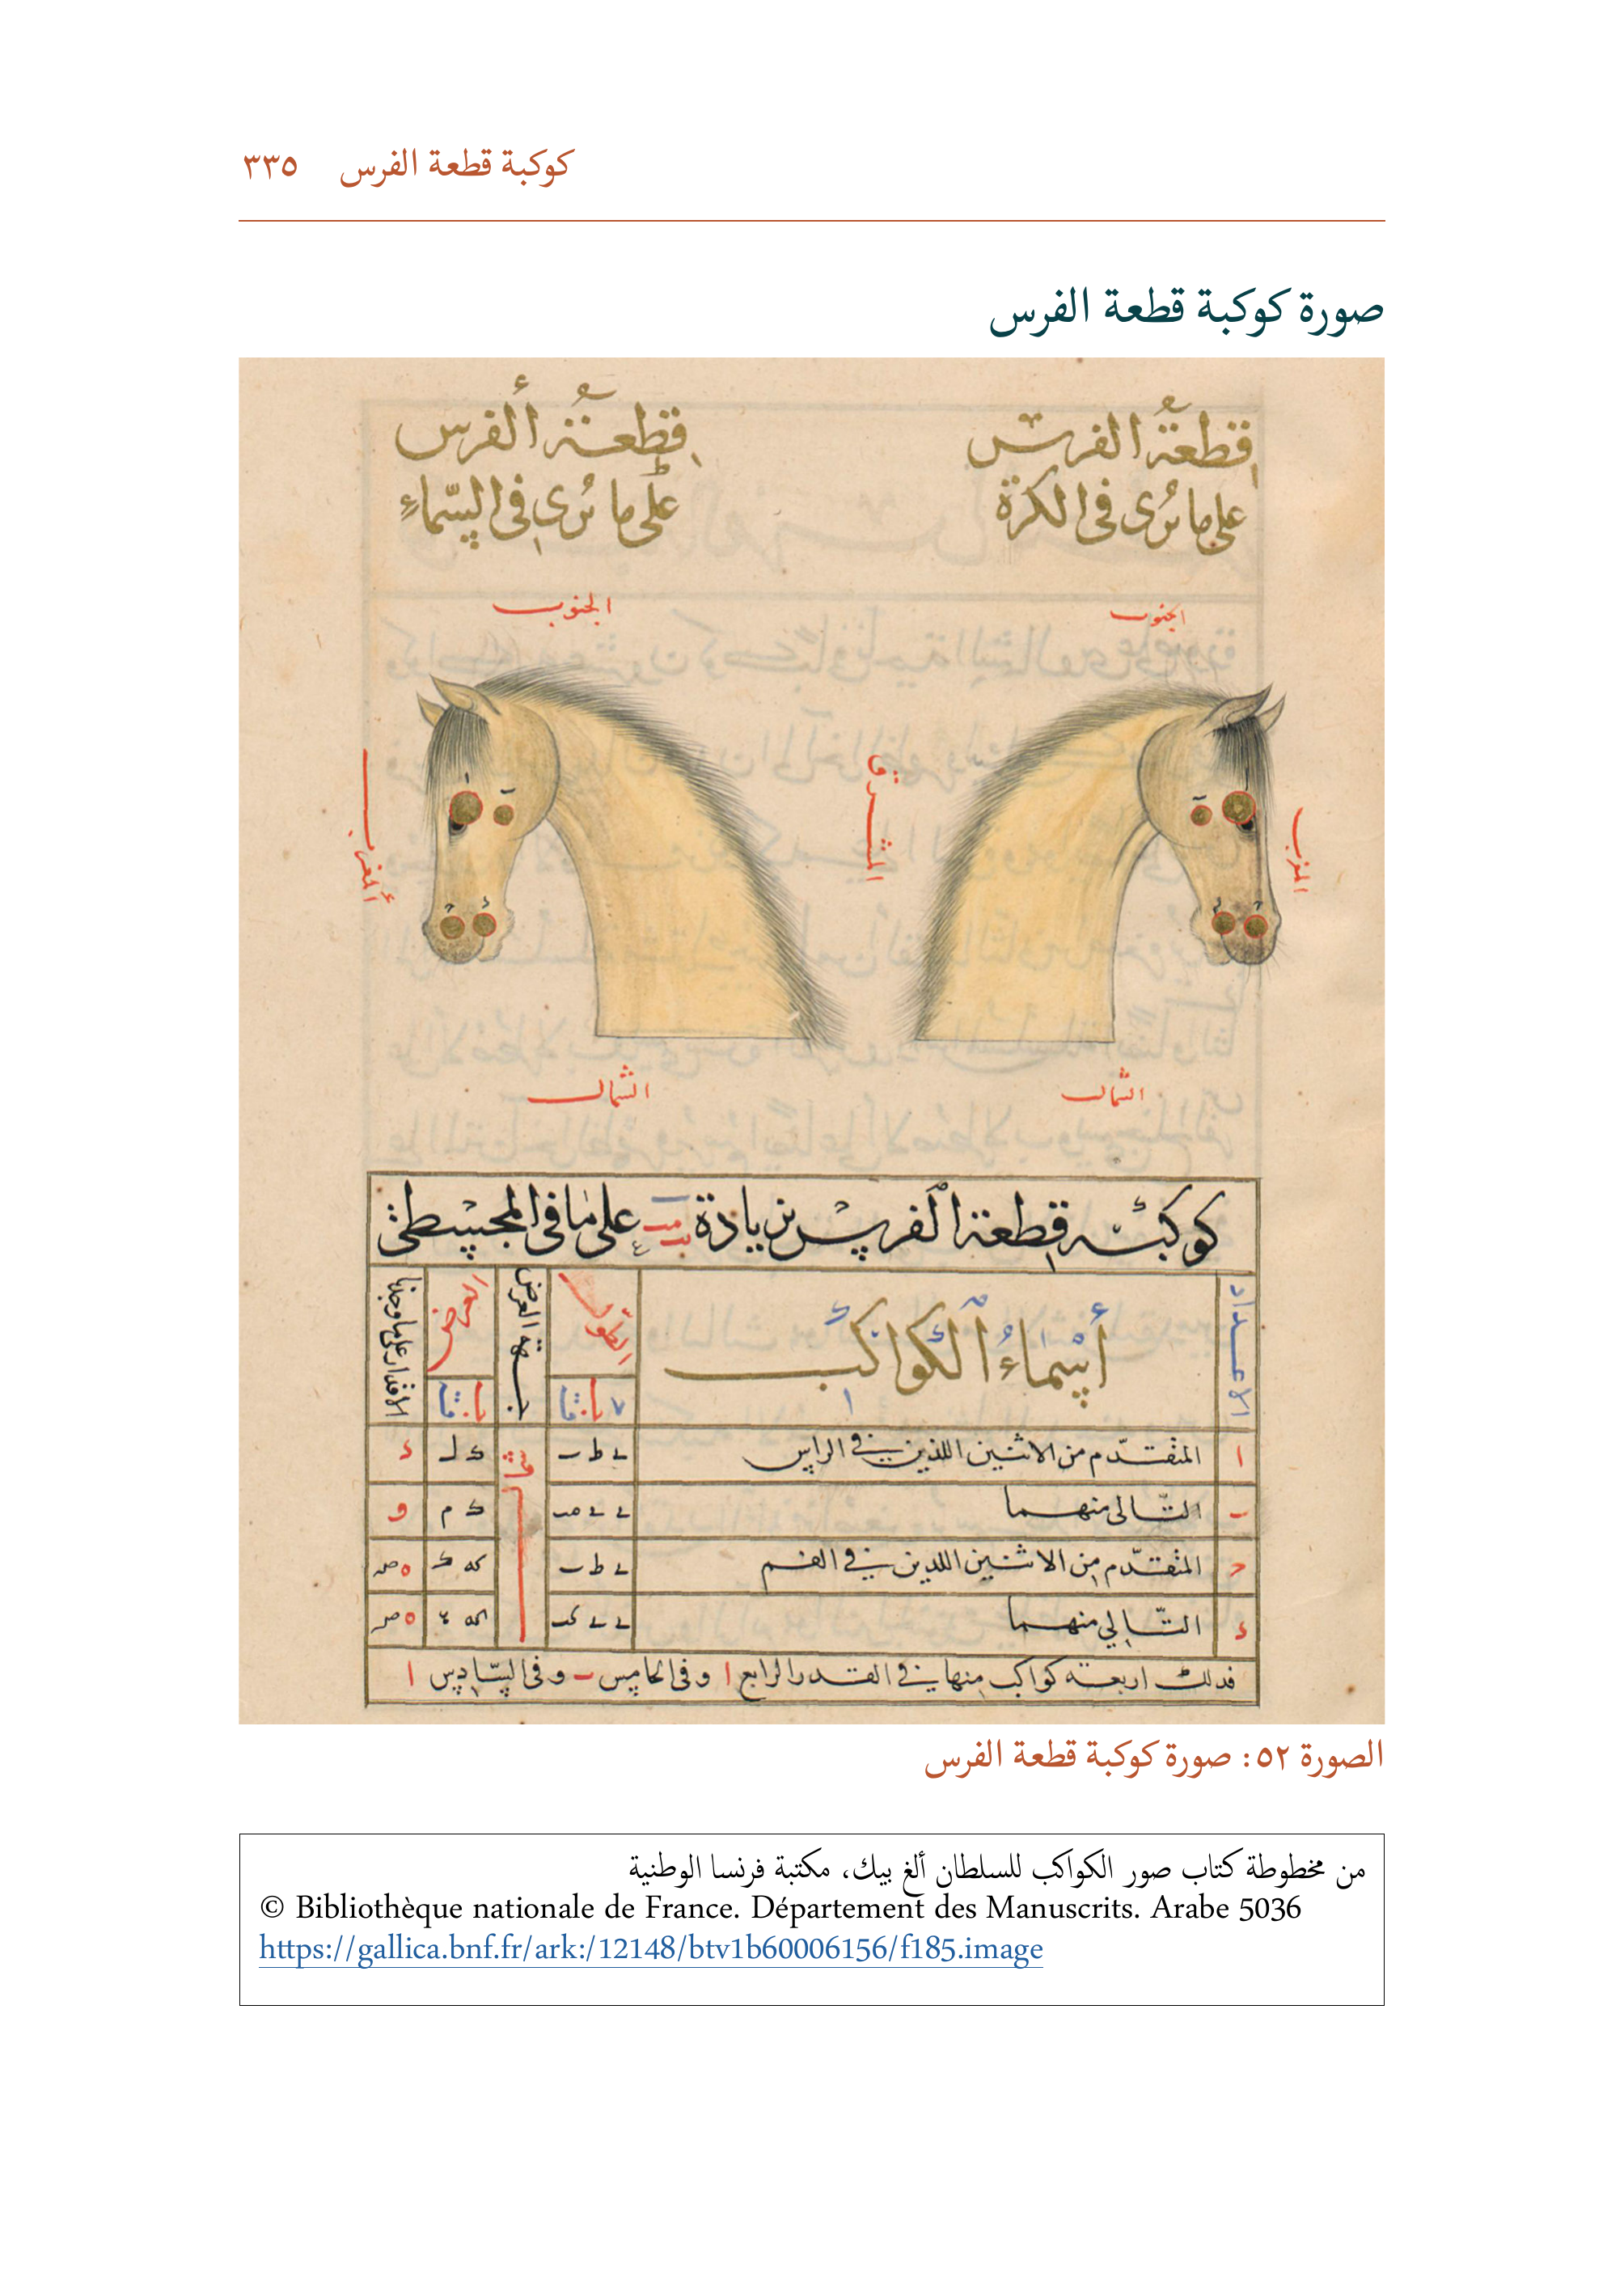 كوكبة قطعة الفرس ٣٣٥
صورة كوكبة قطعة الفرس
قطعة الفرس
على ما ترى في الكرة
قطعة الفرس
على ما ترى في السماء
الجنوب
الجنوب
المغرب
المشرق
المغرب
الشمال
الشمال
كوكبة قطعة الفرس بزيادة على ما في المجسطي
الاعداد
أسماء الكواكب
الطول
جهة العرض
العرض
الاقدار على ما وجدنا
ا المتقدم من الاثنين اللذين في الراس
التالي منهما
المتقدم من الاثنين اللذين في الفم
التالي منهما
فذلك اربعة كواكب منها في القدر الرابع ا وفي الخامس ب وفي السادس ا
الصورة ٥٢: صورة كوكبة قطعة الفرس
من مخطوطة كتاب صور الكواكب للسلطان ألغ بيك، مكتبة فرنسا الوطنية
© Bibliothèque nationale de France. Département des Manuscrits. Arabe 5036
https://gallica.bnf.fr/ark:/12148/btv1b60006156/f185.image